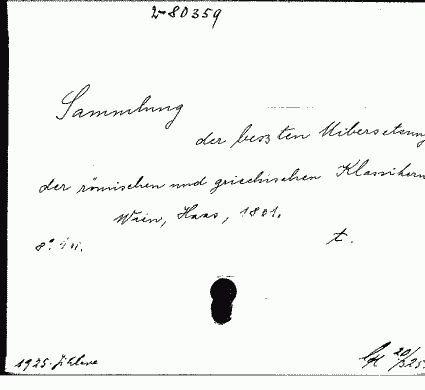 2-80359
Sammlung
der beszten Uibersetzung
der römischen und griechischen Klassikern
Wien, Haas, 1801.
8°. t.
1925. 20/